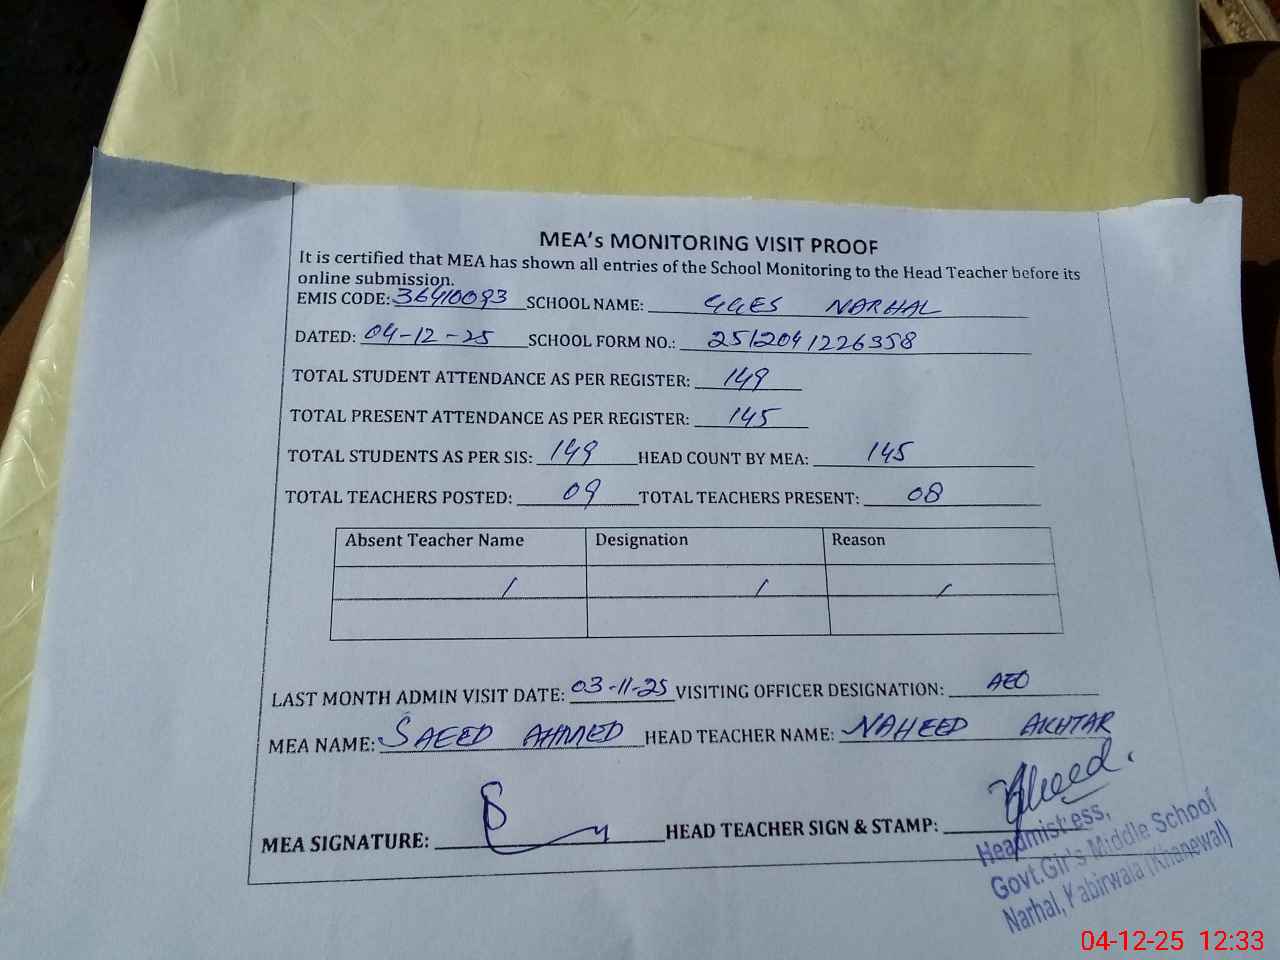 MEA's MONITORING VISIT PROOF
It is certified that MEA has shown all entries of the School Monitoring to the Head Teacher before its
online submission.
EMIS CODE: 36410093 SCHOOL NAME: GGES NARHAL
DATED: 04-12-25 SCHOOL FORM NO.: 2512041226358
TOTAL STUDENT ATTENDANCE AS PER REGISTER: 149
TOTAL PRESENT ATTENDANCE AS PER REGISTER: 145
TOTAL STUDENTS AS PER SIS: 149 HEAD COUNT BY MEA: 145
TOTAL TEACHERS POSTED: 09 TOTAL TEACHERS PRESENT: 08
Absent Teacher Name Designation Reason
/ / /
LAST MONTH ADMIN VISIT DATE: 03-11-25 VISITING OFFICER DESIGNATION: AEO
MEA NAME: SAEED AHMED HEAD TEACHER NAME: NAHEED AKHTAR
MEA SIGNATURE: HEAD TEACHER SIGN & STAMP:
Headmistress,
Govt.Girl's Middle School
Narhal, Kabirwala (Khanewal)
04-12-25 12:33